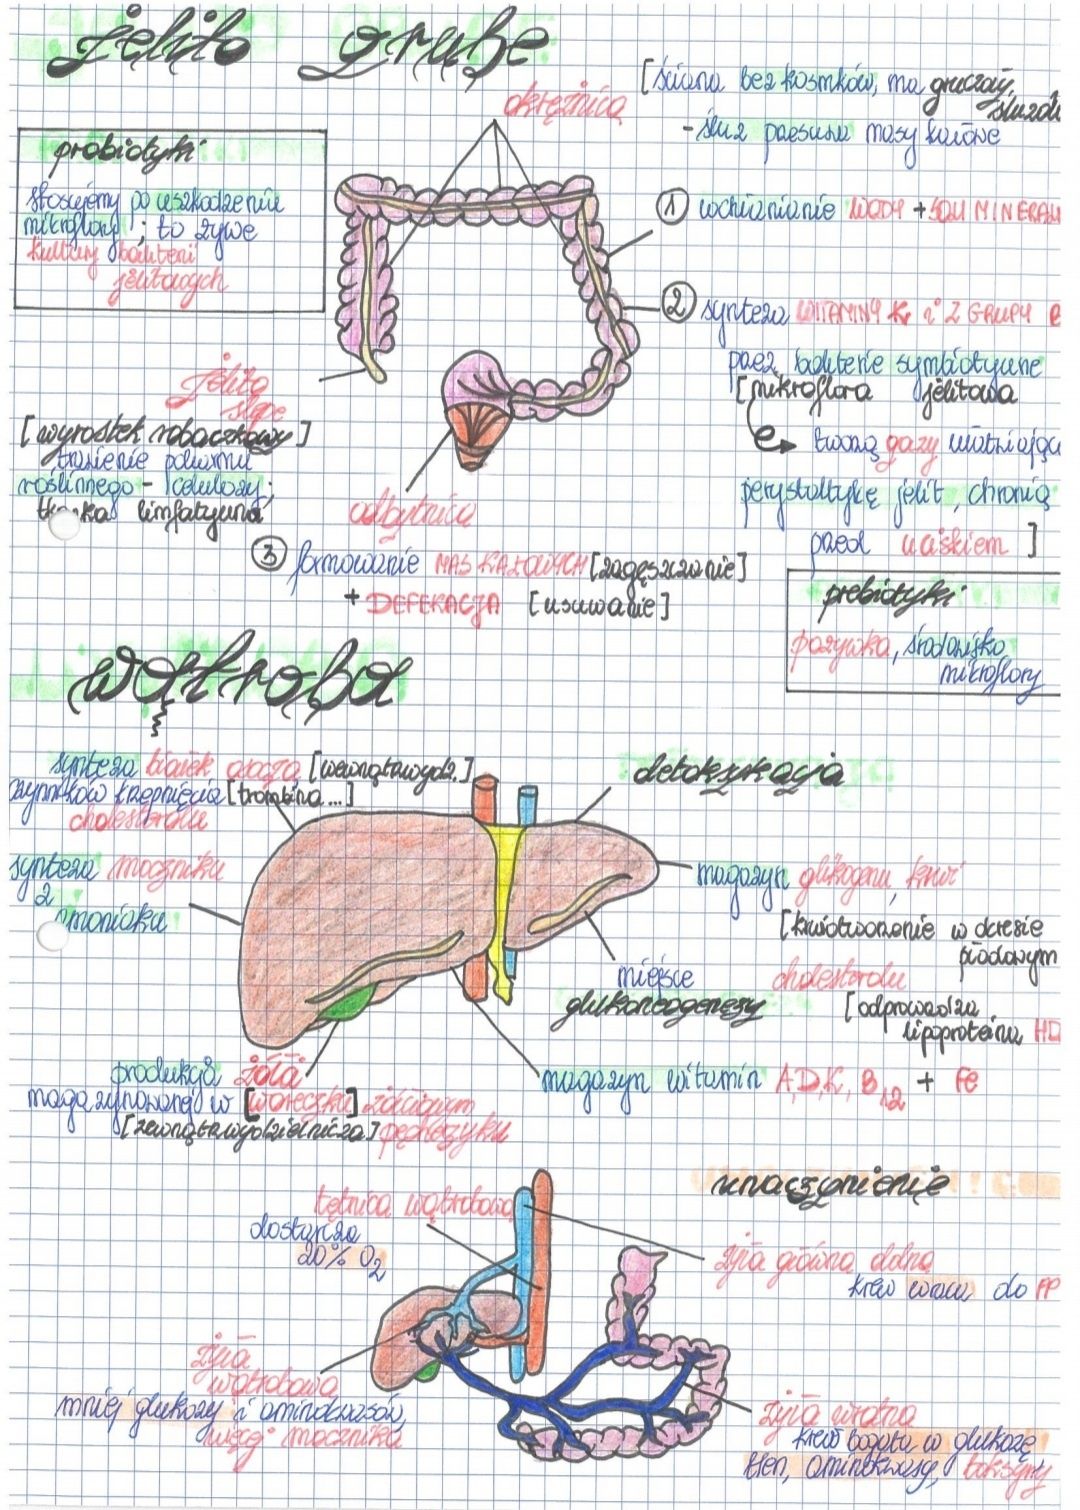 jelito grube
okrężnica
[ściana bez kosmków, ma gruczoły
śluzow
- śluz przesuwa masy kałowe
probiotyki
stosujemy po uszkodzeniu
mikroflory; to żywe
kultury bakterii
jelitowych
① wchłanianie WODY + SOLI MINERAL
② synteza WITAMINY K, i Z GRUPY B
przez bakterie symbiotyczne
[mikroflora jelitowa
tworzą gazy ułatwiając
perystaltykę jelit, chronią
przed uciskiem]
jelito
ślepe
[wyrostek robaczkowy]
trawienie pokarmu
roślinnego - celulozy;
tkanka limfatyczna
odbytnica
③ formowanie MAS KAŁOWYCH [zagęszczanie]
+ DEFEKACJA [usuwanie]
prebiotyki
pożywka, środowisko
mikroflory
wątroba
synteza białek osocza [wewnątrzwydz.]
czynników krzepnięcia [trombina...]
cholesterolu
detoksykacja
synteza mocznika
z
amoniaku
magazyn glikogenu, krwi
[krwiotworzenie w okresie
płodowym
cholesterolu
[odprowadza
lipoproteina HD
miejsce
glukoneogenezy
magazyn witamin A, D, K, B12 + Fe
produkcja żółci
magazynowanej w [woreczku] żółciowym
[zewnątrzwydzielnicza] pęcherzyku
unaczynienie
tętnica wątrobowa
dostarcza
20% O2
żyła główna dolna
krew wraca do PP
żyła
wątrobowa
mniej glukozy i aminokwasów,
więcej mocznika
żyła wrotna
krew bogata w glukozę
tlen, aminokwasy, toksyny